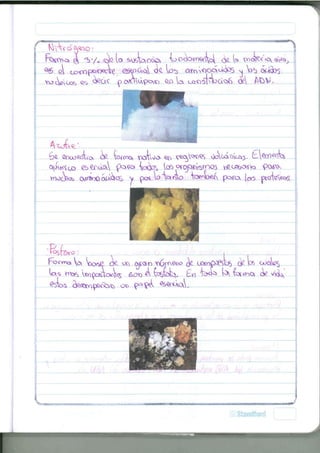 Nitrógeno:
Forma el 3% de la sustancia fundamental de la materia viva,
es el componente esencial de los aminoácidos y los ácidos
nucleicos es decir participan en la constitución del ADN.
Azufre:
Se encuentra de forma nativa en regiones volcánicas. Elemento
químico esencial para todos los organismos necesario para
muchos aminoácidos y por lo tanto también para las proteínas
Fósforo:
Forma la base de un gran número de compuestos de los cuales
los mas importantes son el fosfato. En toda la forma de vida
estos desempeñan un papel esencial.
Standford